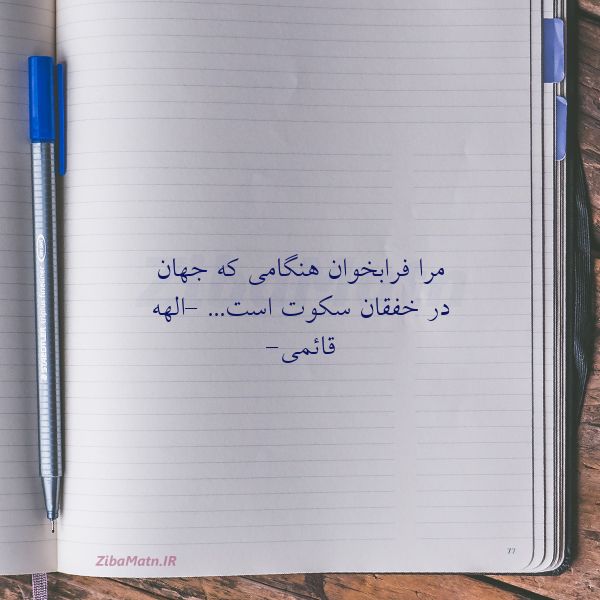 مرا فرابخوان هنگامی که جهان
در خفقان سکوت است... -الهه
قائمی-
STAEDTLER triplus fineliner
77
ZibaMatn.IR